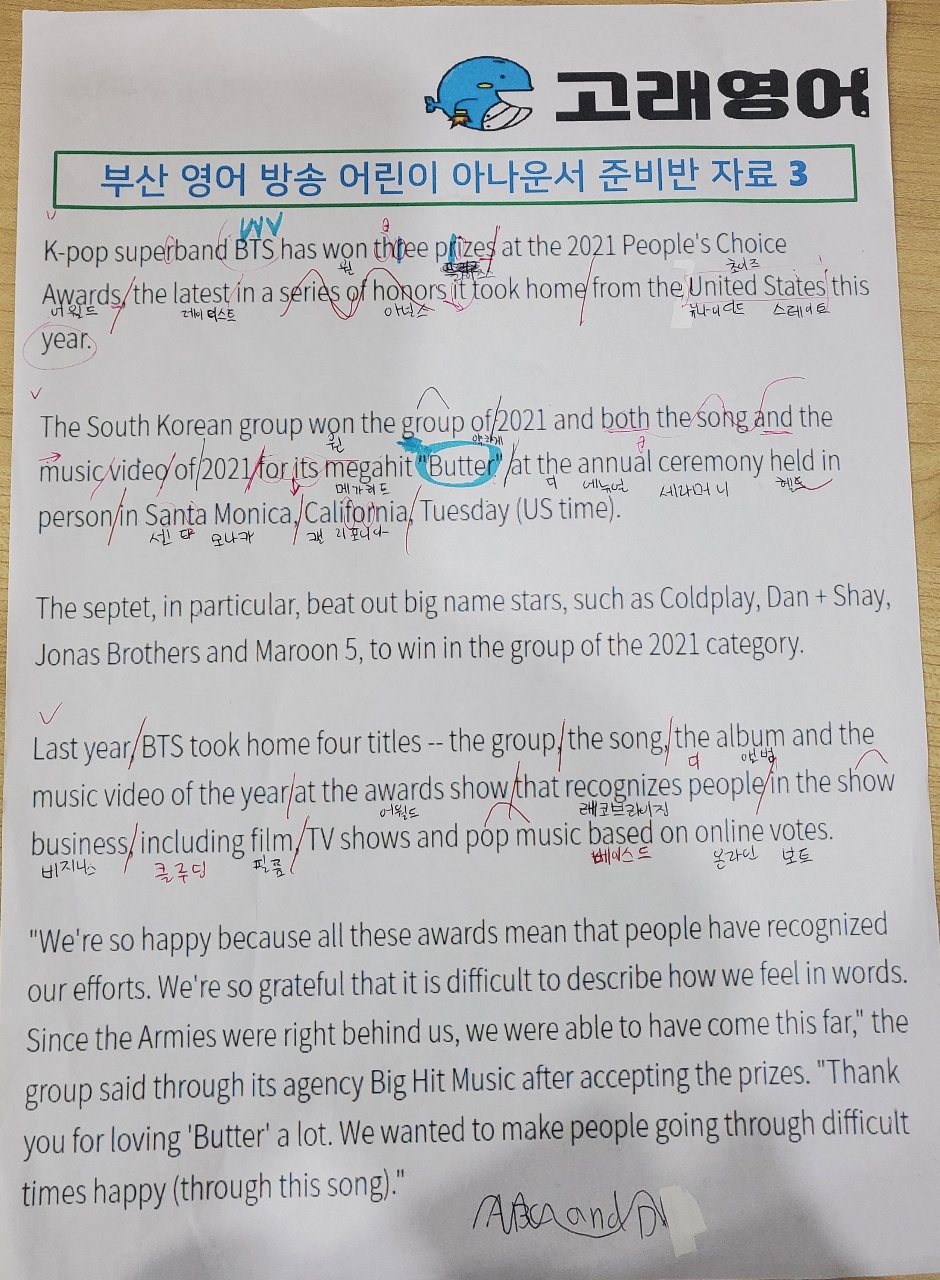 고래영어
부산 영어 방송 어린이 아나운서 준비반 자료 3
K-pop superband BTS has won three prizes at the 2021 People's Choice
원
초이즈
Awards, the latest in a series of honors it took home from the United States this
어월드 레이티스트 아널스 유나이티드 스테이트
year.
The South Korean group won the group of 2021 and both the song and the
원 약하게
music video of 2021 for its megahit "Butter" at the annual ceremony held in
메가히트 디 에뉴얼 세라머니 헬드
person in Santa Monica, California, Tuesday (US time).
센타 모니카 캘리포니아
The septet, in particular, beat out big name stars, such as Coldplay, Dan + Shay,
Jonas Brothers and Maroon 5, to win in the group of the 2021 category.
Last year, BTS took home four titles -- the group, the song, the album and the
디 앨범
music video of the year at the awards show that recognizes people in the show
어월드
business, including film, TV shows and pop music based on online votes.
비지니스 클루딩 필름 베이스드 온라인 보트
"We're so happy because all these awards mean that people have recognized
our efforts. We're so grateful that it is difficult to describe how we feel in words.
Since the Armies were right behind us, we were able to have come this far," the
group said through its agency Big Hit Music after accepting the prizes. "Thank
you for loving 'Butter' a lot. We wanted to make people going through difficult
times happy (through this song)."